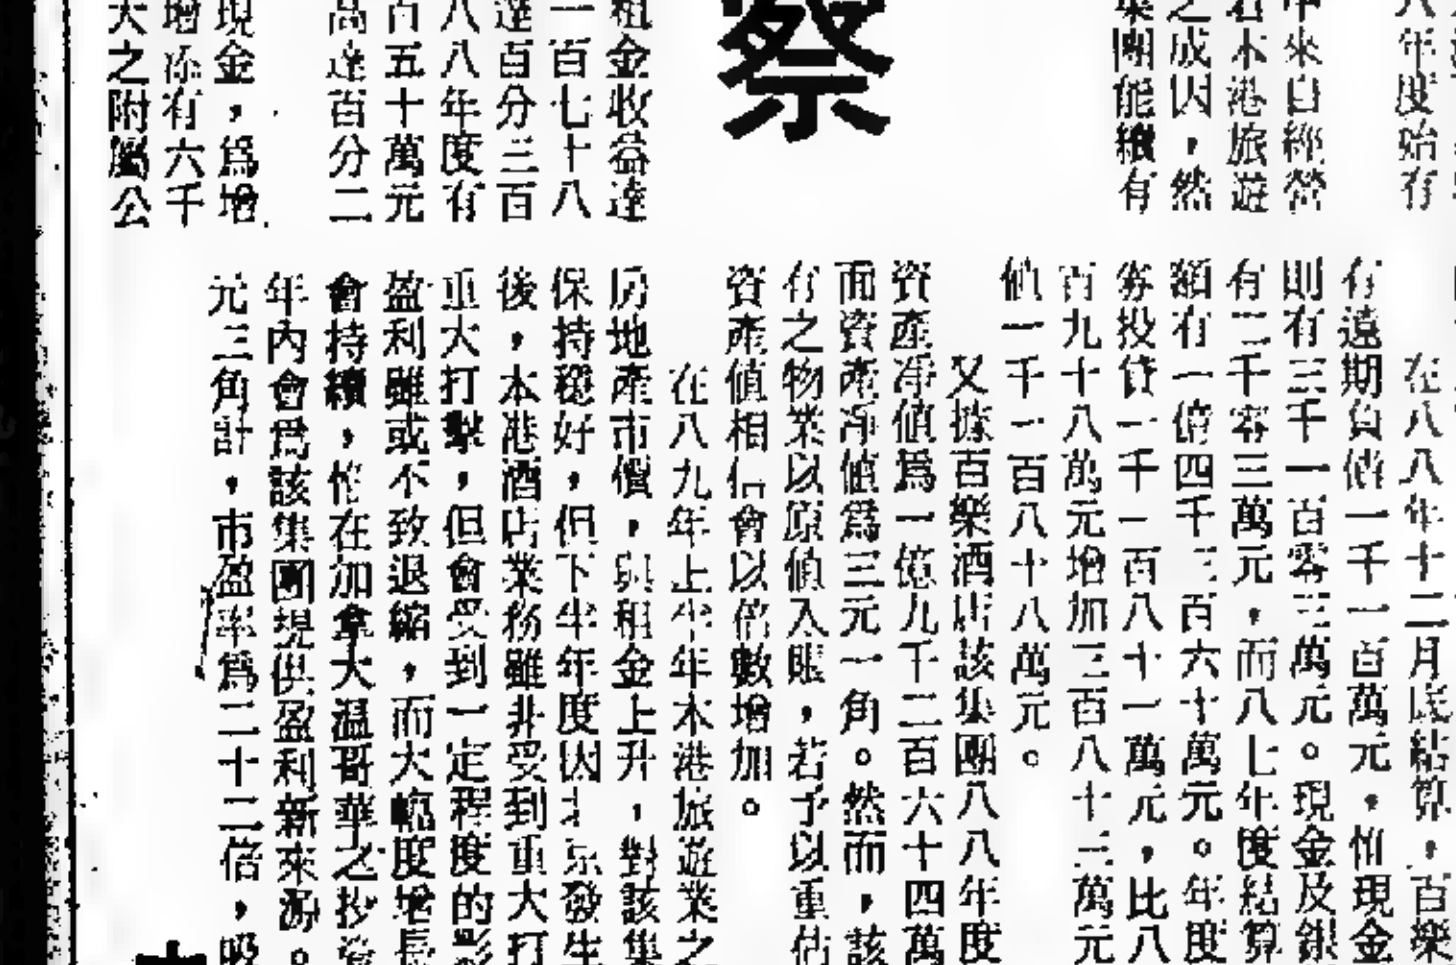 八年度始有
中來自經營
若本港旅遊
之成因，然
集團能續有
察
租金收益達
一百七十八
達百分三百
八八年度有
百五十萬元
高達百分二
現金，爲增
增添有六千
大之附屬公
在八八年十二月底結算，百樂
有遠期負債一千一百萬元，惟現金
則有三千一百零三萬元。現金及銀
有二千零三萬元，而八七年度結算
額有一億四千三百六十萬元。年度
券投資一千一百八十一萬元，比八
百九十八萬元增加三百八十三萬元
值一千一百八十八萬元。
又據百樂酒店該集團八八年度
資產淨值爲一億九千二百六十四萬
面資產淨值爲三元一角。然而，該
有之物業以原值入賬，若予以重估
資產值相信會以倍數增加。
在八九年上半年本港旅遊業之
房地產市價，與租金上升，對該集
保持穩好，但下半年度因北京發生
後，本港酒店業務雖非受到重大打
重大打擊，但會受到一定程度的影
盈利雖或不致退縮，而大幅度增長
會持續，惟在加拿大温哥華之抄
年內會爲該集團提供盈利新來源。
元三角計，市盈率爲二十二倍，吸